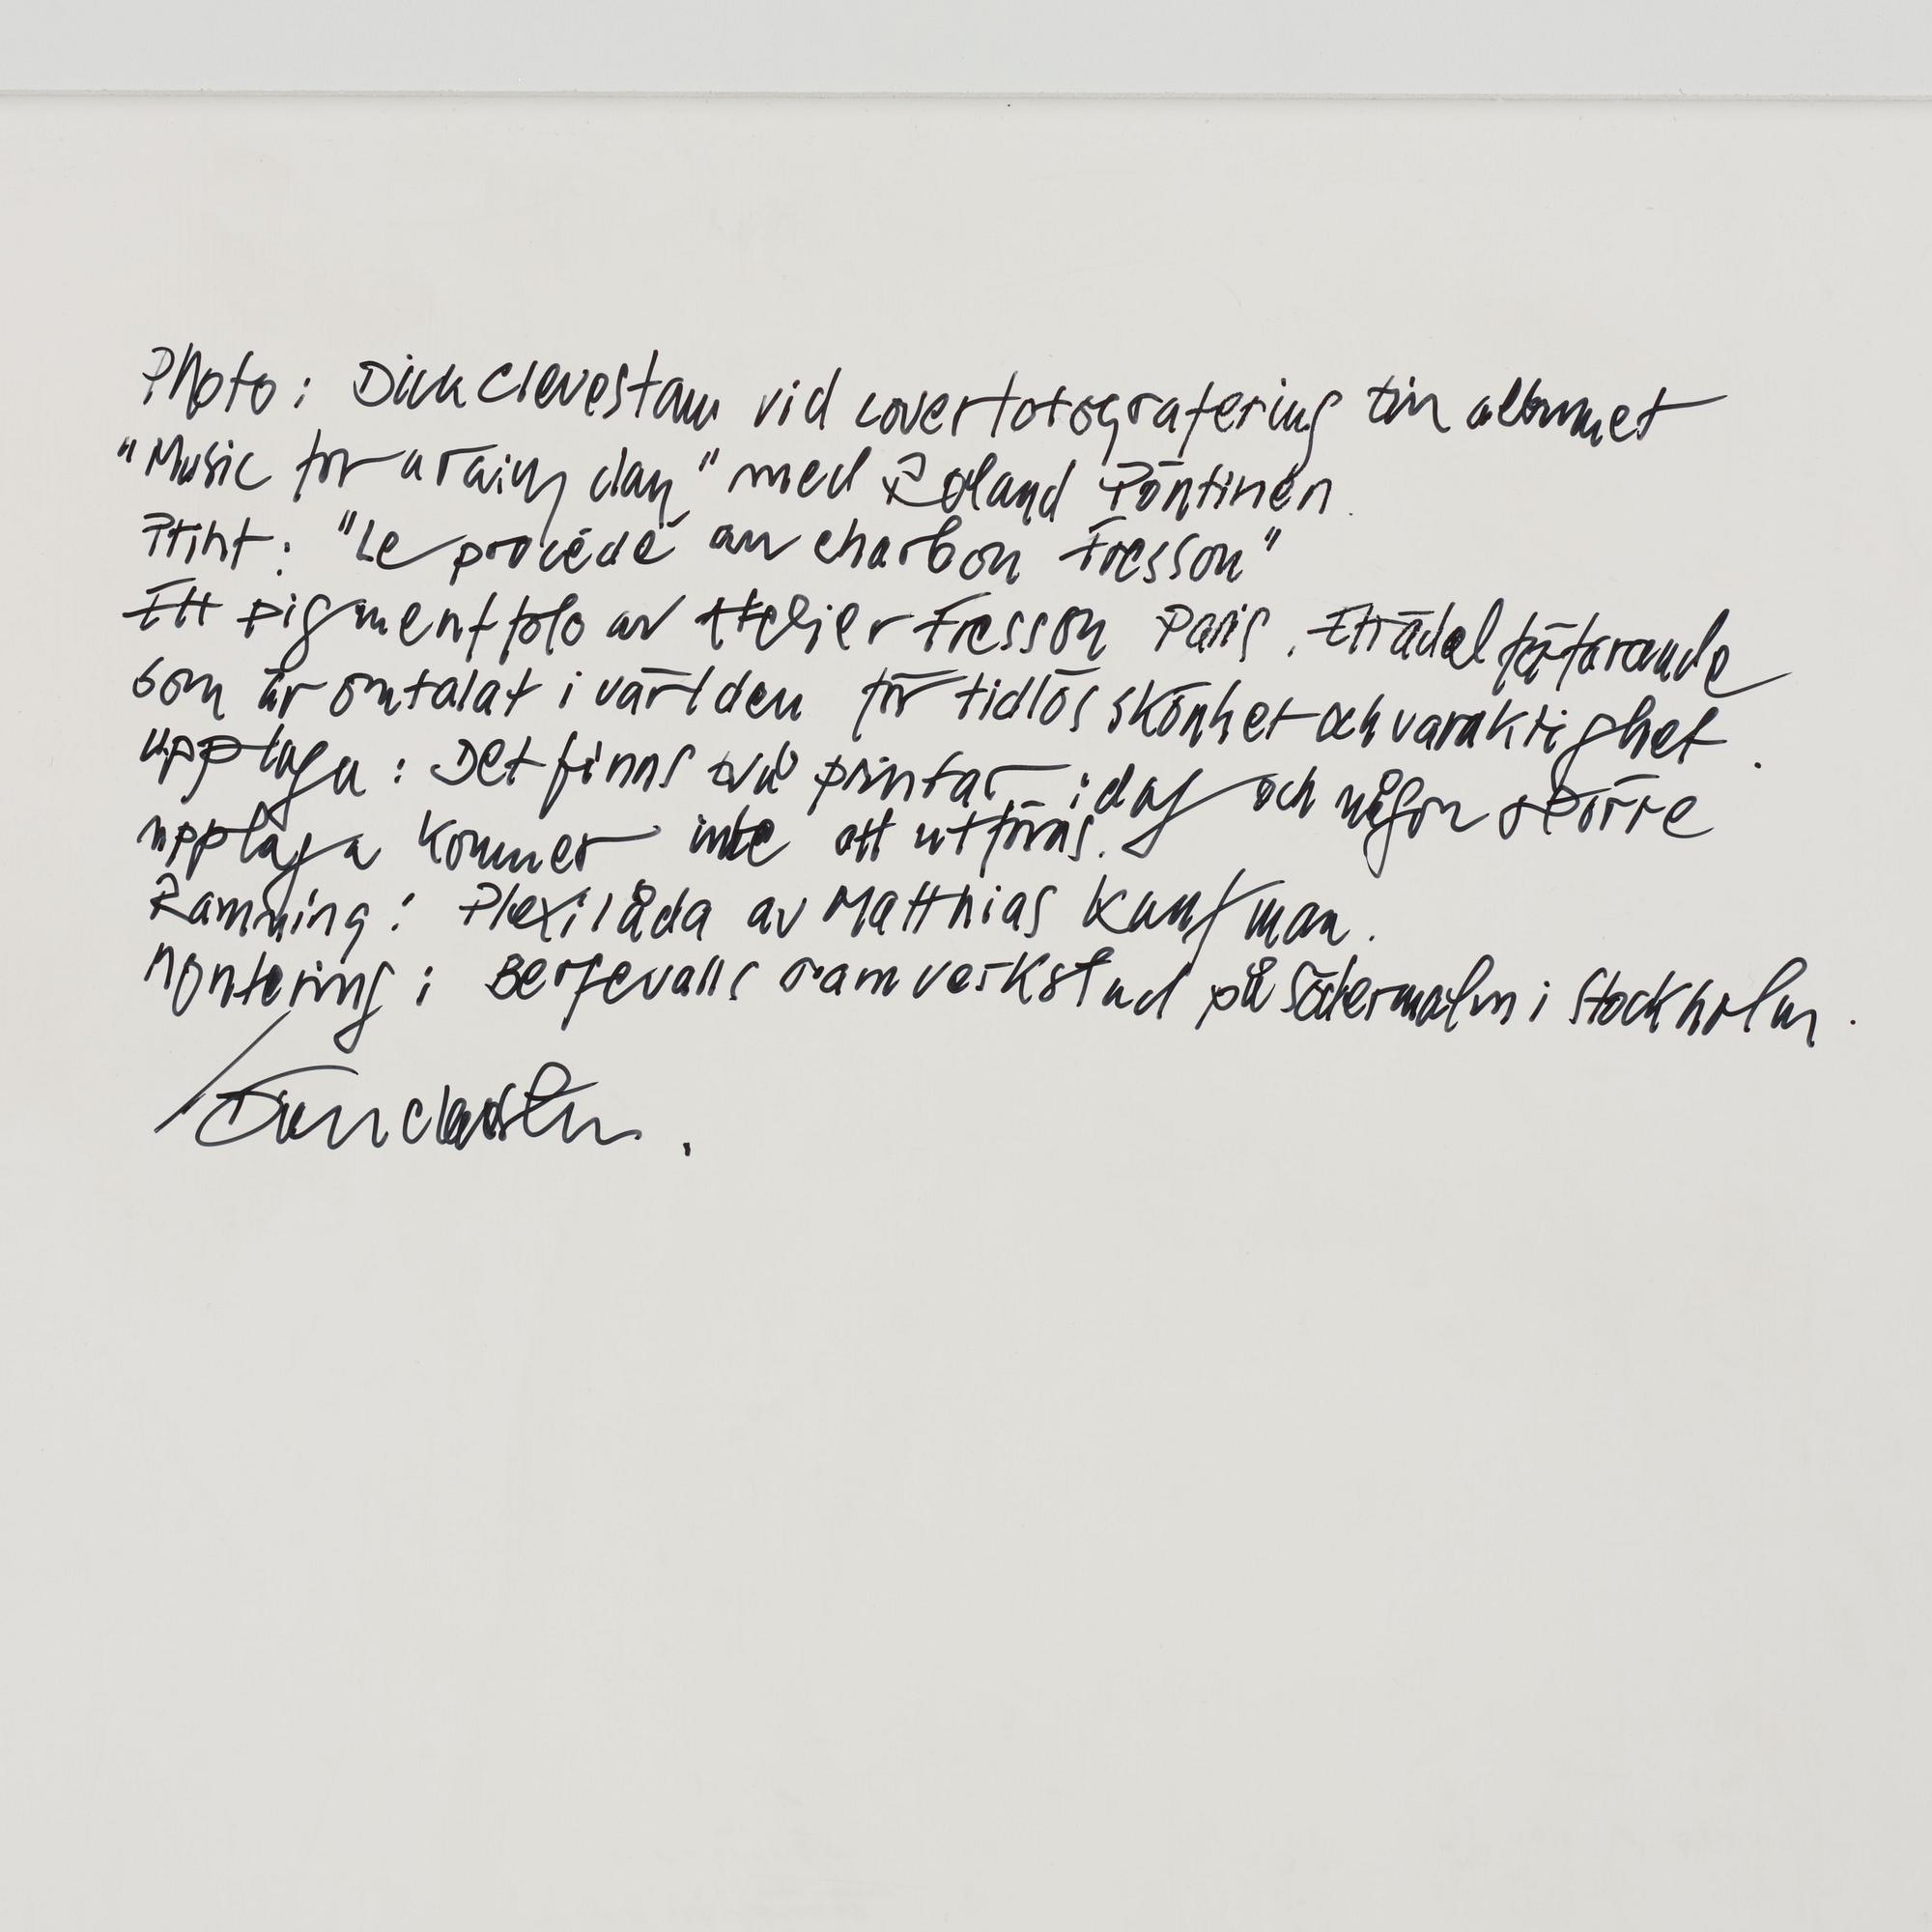 Photo: Dick Clevestam vid coverfotografering till albumet
"Music for a rainy day" med Roland Pöntinen.
Print: "Le procédé au charbon Fresson"
Ett pigmentfoto av Atelier Fresson Paris. Ett ädelförfarande
som är omtalat i världen för tidlös skönhet och varaktighet.
Upplaga: Det finns två printar idag och någon större
upplaga kommer inte att utföras.
Ramning: Plexilåda av Matthias Kaufman.
Montering: Bergevalls ramverkstad på Södermalm i Stockholm.